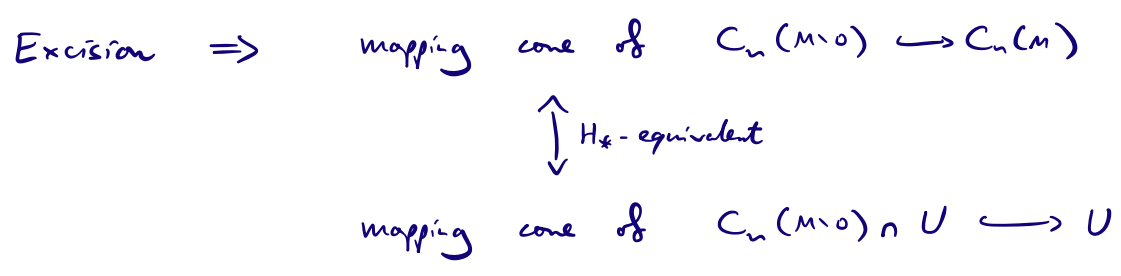 Excision ⟹ mapping cone of Cₙ(M∖0) ↪ Cₙ(M)
↕ H_* - equivalent
mapping cone of Cₙ(M∖0) ∩ U ↪ U